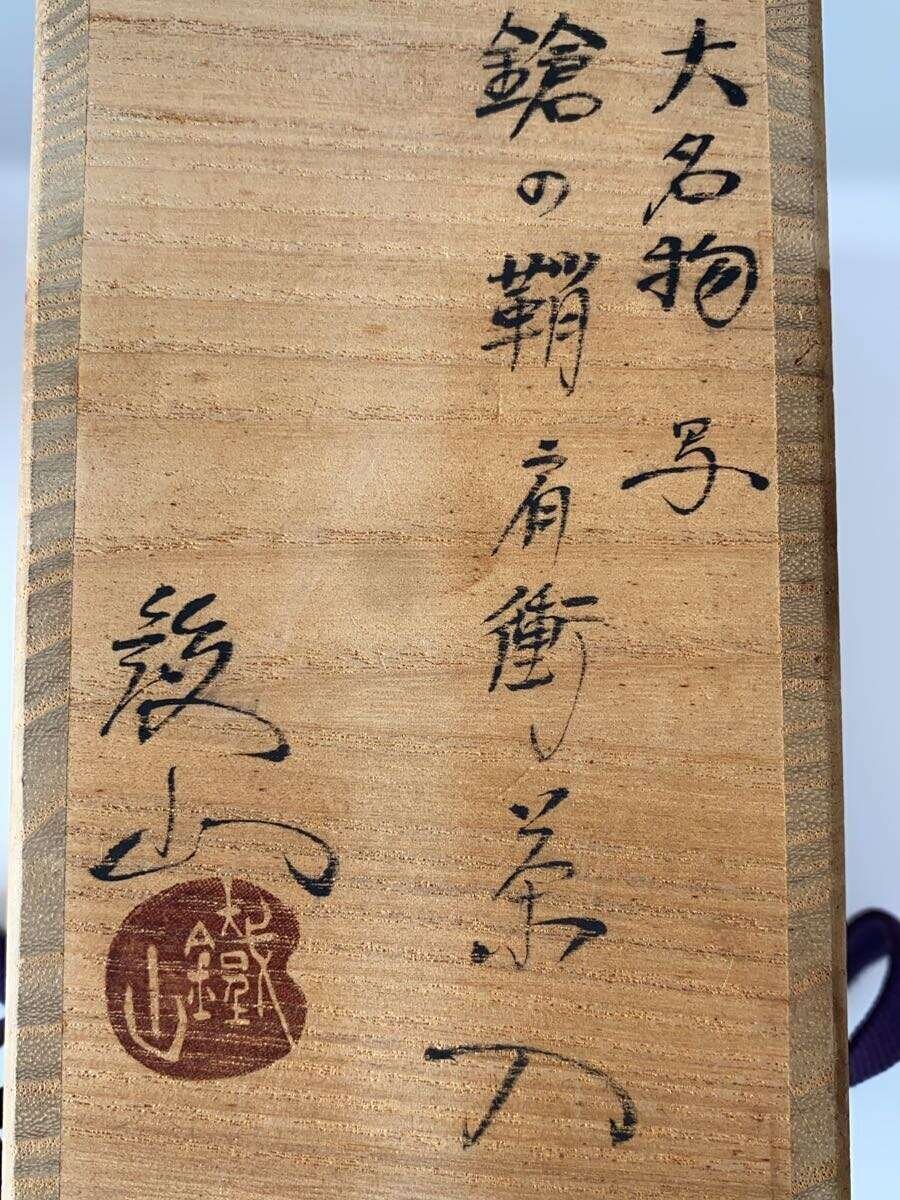 大名物 写
鎗の鞘 肩衝 茶入
鐵山